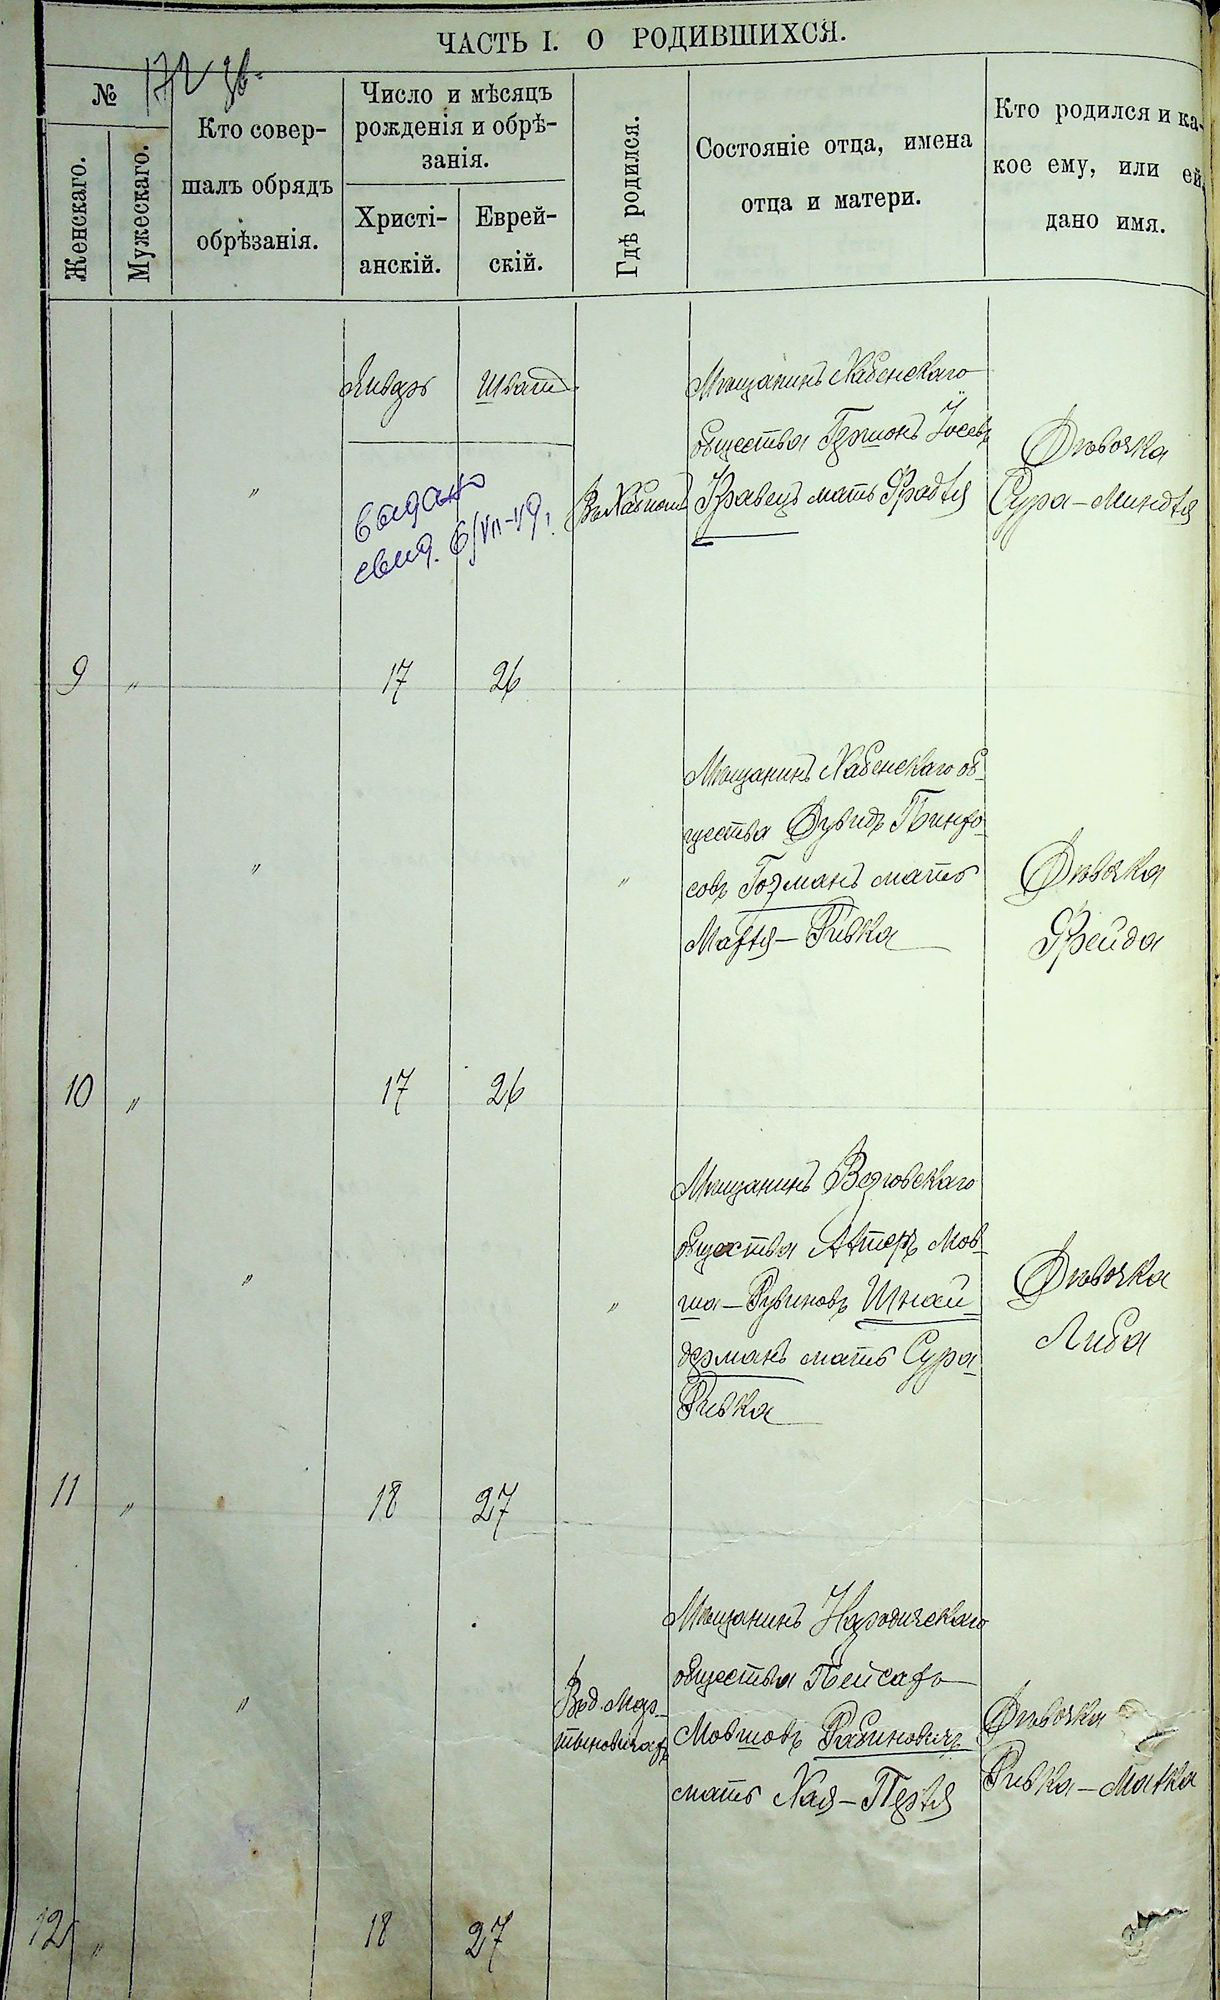 ЧАСТЬ I. О РОДИВШИХСЯ.
№
Женскаго.
Мужескаго.
Кто совер-
шалъ обрядъ
обрѣзанія.
Число и мѣсяцъ
рожденія и обрѣ-
занія.
Христі-
анскій.
Еврей-
скій.
Гдѣ родился.
Состояніе отца, имена
отца и матери.
Кто родился и ка-
кое ему, или ей,
дано имя.
Январь
Шват
выдано
свид. 6/VII-19
9 " " 17 26
Мещанинъ Хабенскаго
общества Гершонъ Іосевъ
Кравецъ мать Фрадля
Дѣвочка
Сура-Миндля
10 " " 17 26 "
Мещанинъ Хабенскаго об-
щества Дувидъ Пинхо-
совъ Гозманъ мать
Маля-Ривка
Дѣвочка
Фрейда
11 " " 18 27 "
Мещанинъ
общества Мов-
ша-Рувиновъ Шнай-
дерманъ мать Сура-
Ривка
Дѣвочка
Либа
12 " " 18 27
Въ д. Мар-
тыновичахъ
Мещанинъ Народичскаго
общества Пейсахъ
Мовшовъ Рабиновичъ
мать Хая-Перля
Дѣвочка
Ривка-Малка